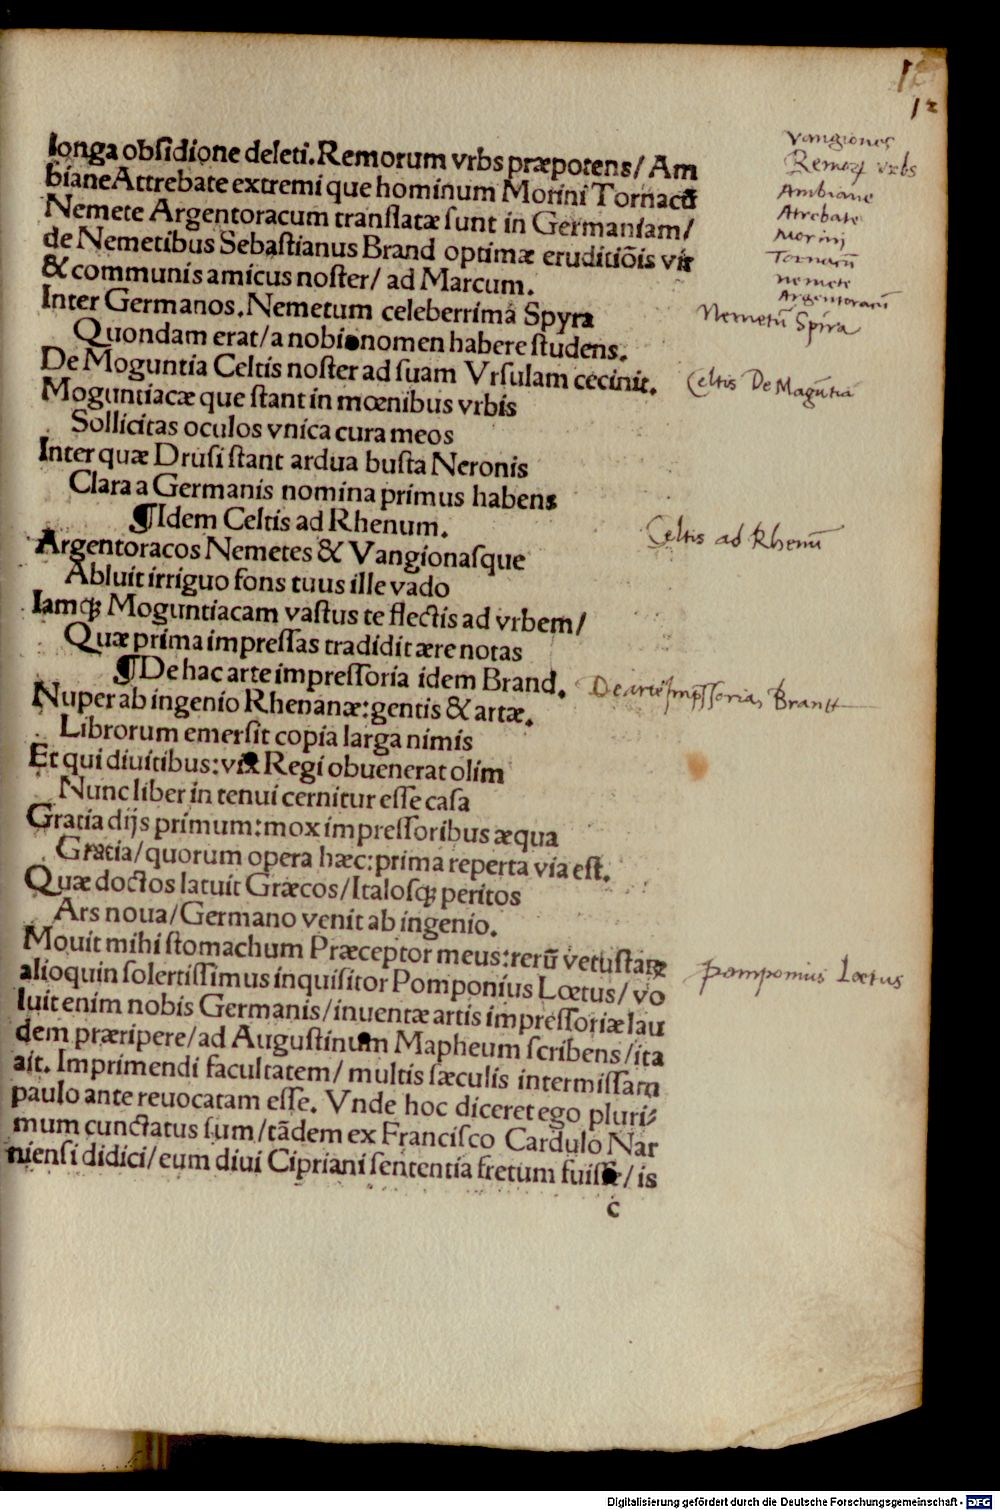 12
longa obſidione deleti. Remorum vrbs præpotens/ Am
biane Attrebate extremi que hominum Morini Tornacū
Nemete Argentoracum tranſlatæ ſunt in Germaniam/
de Nemetibus Sebaſtianus Brand optimæ eruditiōis vir
& communis amicus noſter/ ad Marcum.
Inter Germanos. Nemetum celeberrima Spyra
Quondam erat/ a nobis nomen habere ſtudens.
De Moguntia Celtis noſter ad ſuam Vrſulam cecinit.
Moguntiacæ que ſtant in mœnibus vrbis
Sollicitas oculos vnica cura meos
Inter quæ Druſi ſtant ardua buſta Neronis
Clara a Germanis nomina primus habens
¶Idem Celtis ad Rhenum.
Argentoracos Nemetes & Vangionaſque
Abluit irriguo fons tuus ille vado
Iamqꝫ Moguntiacam vaſtus te flectis ad vrbem/
Quæ prima impreſſas tradidit ære notas
¶De hac arte impreſſoria idem Brand.
Nuper ab ingenio Rhenanæ: gentis & artæ.
Librorum emerſit copia larga nimis
Et qui diuitibus: vix Regi obuenerat olim
Nunc liber in tenui cernitur eſſe caſa
Gratia dijs primum: mox impreſſoribus æqua
Gratia/ quorum opera hæc: prima reperta via eſt.
Quæ doctos latuit Græcos/ Italoſqꝫ peritos
Ars noua/ Germano venit ab ingenio.
Mouit mihi ſtomachum Præceptor meus: rerū vetuſtatæ
alioquin ſolertiſſimus inquiſitor Pomponius Lœtus/ vo
luit enim nobis Germanis/ inuentæ artis impreſſoriæ lau
dem præripere/ ad Auguſtinum Mapheum ſcribens/ ita
ait. Imprimendi facultatem/ multis ſæculis intermiſſam
paulo ante reuocatam eſſe. Vnde hoc diceret ego pluri⸗
mum cunctatus ſum/ tādem ex Franciſco Cardulo Nar
nienſi didici/ eum diui Cipriani ſententia fretum fuiſſe/ is
c
Vangiones
Remoꝝ vrbs
Ambiane
Atrebate
Morinj
Tornacū
Nemete
Argentoracū
Nemetū Spira
Celtis De Magūtia
Celtis ad Rhenū
De arte Imp̄ſſoria, Brantt
Pomponius Lœtus
Digitalisierung gefördert durch die Deutsche Forschungsgemeinschaft - DFG